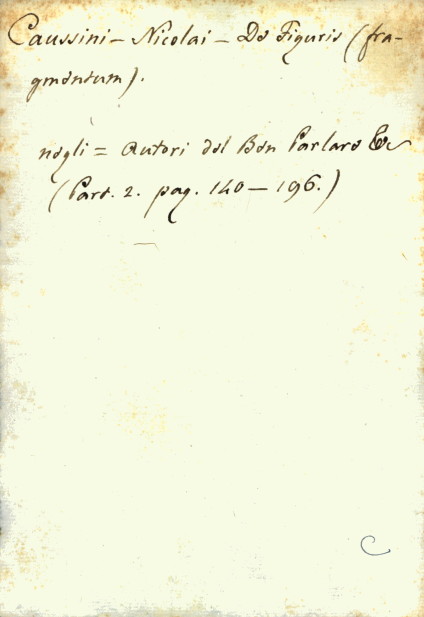 Caussini - Nicolai - De Figuris (fra-
gmentum).
negli = Autori del Ben Parlare &c
(Part. 2. pag. 140 - 196.)